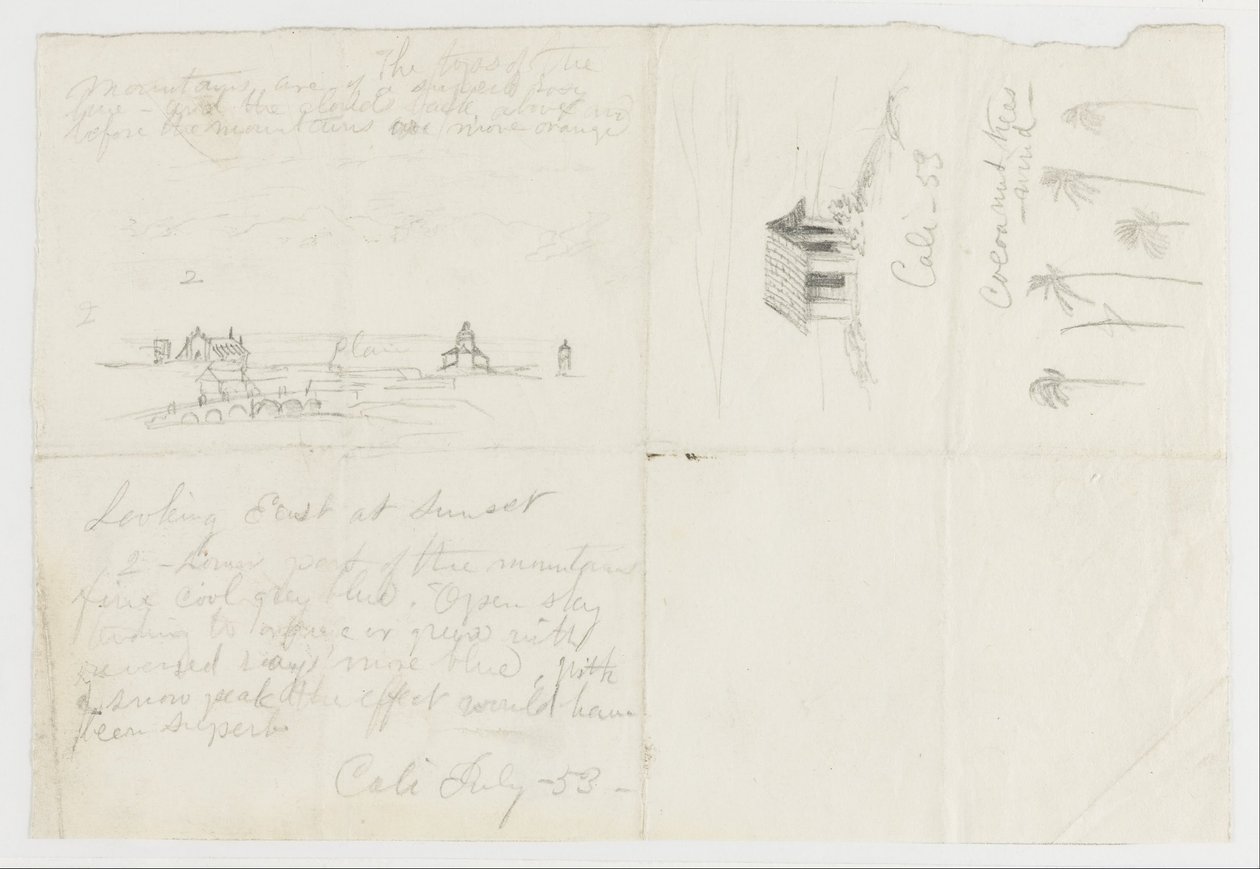 The tops of the
mountains are of a superb rosy
hue - and the clouds back, above and
before the mountains are more orange
2
2
plain
Looking East at Sunset
2 - Lower part of the mountains
fine cool grey blue. Open sky
tending to orange or green with
reversed rays more blue, with
a snow peak the effect would have
been superb
Cali July - 53 -
Cali - 53
Cocoanut trees
- wind -